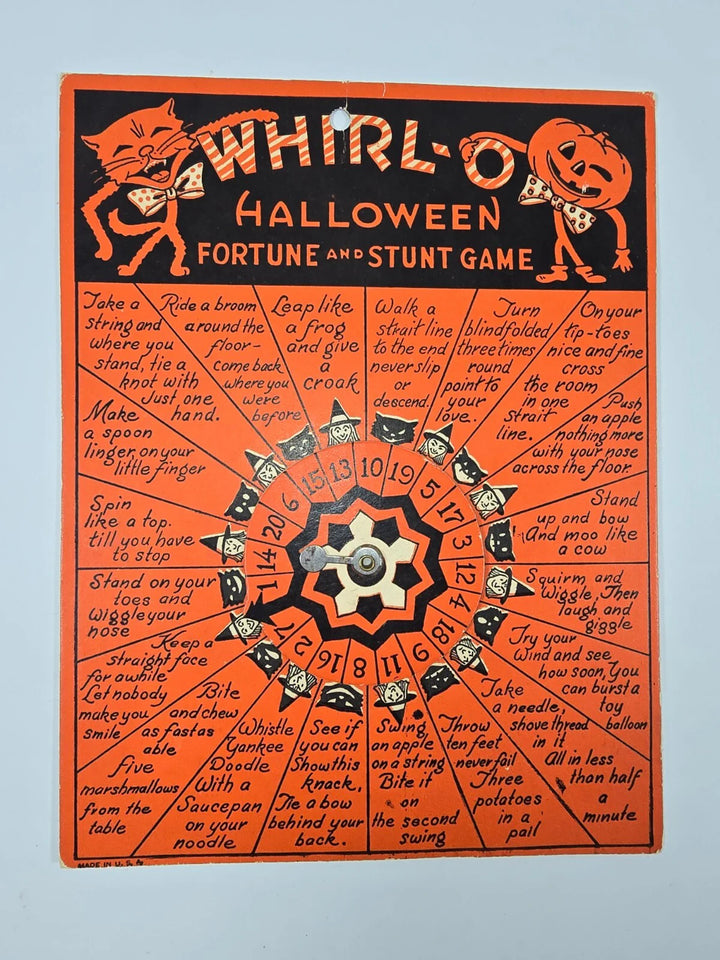 WHIRL-O
HALLOWEEN
FORTUNE AND STUNT GAME
Take a
string and
where you
stand, tie a
knot with
Just one
hand.
Ride a broom
around the
floor-
come back
where you
were
before
Leap like
a frog
and give
a
croak
Walk a
strait line
to the end
never slip
or
descend.
Turn
blindfolded
three times
round
point to
your
love.
On your
tip-toes
nice and fine
cross
the room
in one
strait
line.
Push
an apple
nothing more
with your nose
across the floor.
Stand
up and bow
And moo like
a cow
Squirm and
Wiggle, Then
laugh and
giggle
Try your
Wind and see
how soon, You
can burst a
toy
balloon
Take
a needle,
shove thread
in it
All in less
than half
a
minute
Throw
ten feet
never fail
Three
potatoes
in a
pail
Swing
an apple
on a string
Bite it
on
the second
swing
See if
you can
Show this
knack,
Tie a bow
behind your
back.
Whistle
Yankee
Doodle
With a
Saucepan
on your
noodle
Bite
and chew
as fast as
able
five
marshmallows
from the
table
Keep a
straight face
for awhile
Let nobody
make you
smile
Stand on your
toes and
Wiggle your
nose
Spin
like a top.
till you have
to stop
Make
a spoon
linger on your
little finger
10
19
5
17
3
12
4
18
9
11
8
16
2
7
1
14
20
6
15
13
MADE IN U.S.A.